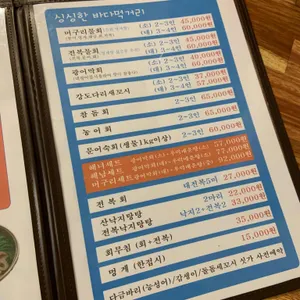 싱싱한 바다먹거리
머구리물회 (소) 2-3인 45,000원
(대) 3-4인 60,000원
전복물회 (소) 2-3인 45,000원
(대) 3-4인 60,000원
광어막회 (소) 2-3인 40,000원
(대) 3-4인 60,000원
강도다리세꼬시 (소) 37,000원
(대) 57,000원
참돔회 2-3인 65,000원
농어회 2-3인 65,000원
문어숙회(생물1kg이상) 2-3인 60,000원
해녀세트 57,000원
해남세트 77,000원
머구리세트 92,000원
전복회 대전복5미 27,000원
산낙지탕탕 2마리 22,000원
전복낙지탕탕 낙지2+전복 33,000원
회무침 (회+전복) 35,000원
멍게 (한접시) 15,000원
다금바리(능성어)/감생이/돌돔세꼬시 싯가 사전예약